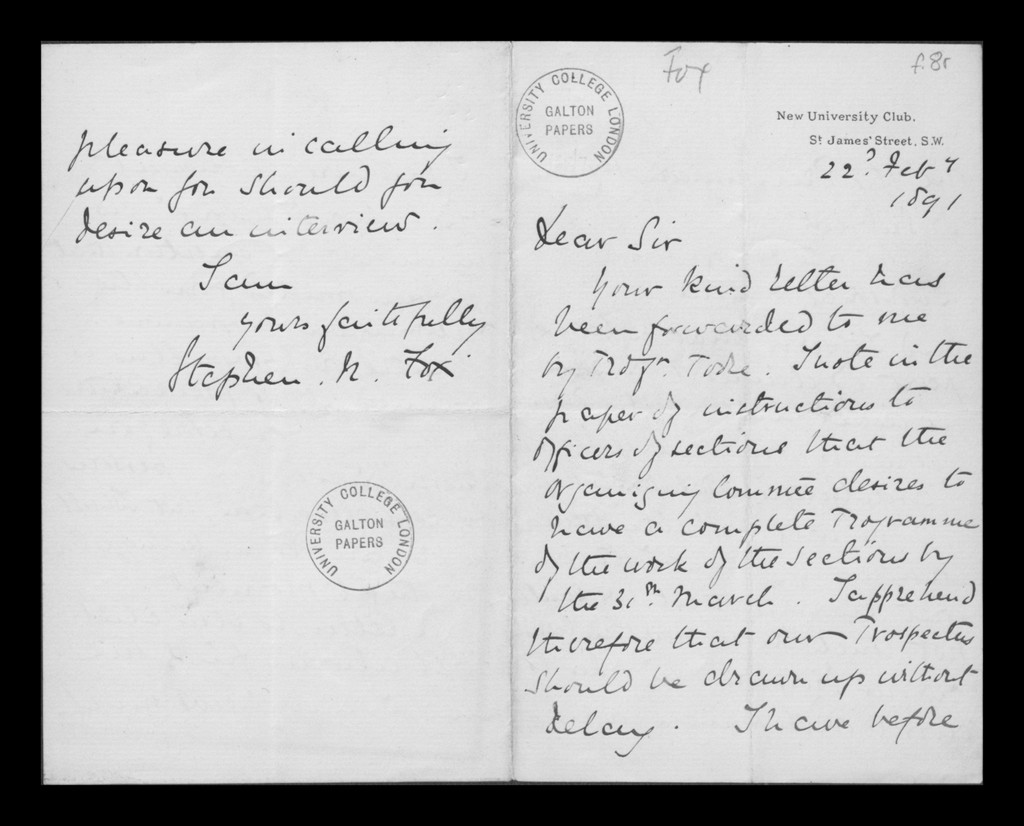 Fox
f. 8r
New University Club.
St James' Street. S.W.
22d Feby
1891
Dear Sir
Your kind letter has
been forwarded to me
by Profr.
I note in the
paper of instructions to
officers of sections that the
organizing Commee desires to
have a complete Programme
of the work of the sections by
the 31st March. I apprehend
therefore that our Prospectus
should be drawn up without
delay. I have before
UNIVERSITY COLLEGE LONDON
GALTON
PAPERS
pleasure in calling
upon you should you
desire an interview.
I am
yours faithfully
Stephen. N. Fox
UNIVERSITY COLLEGE LONDON
GALTON
PAPERS